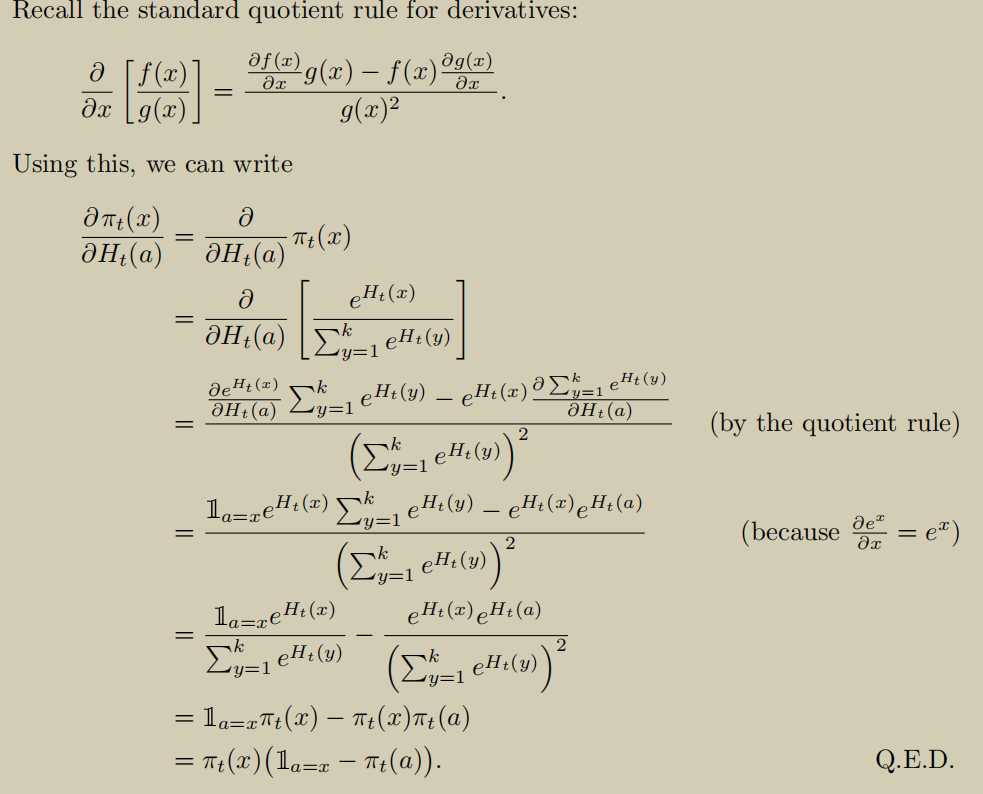 Recall the standard quotient rule for derivatives:
\frac{\partial}{\partial x} \left[ \frac{f(x)}{g(x)} \right] = \frac{\frac{\partial f(x)}{\partial x} g(x) - f(x) \frac{\partial g(x)}{\partial x}}{g(x)^2}.
Using this, we can write
\frac{\partial \pi_t(x)}{\partial H_t(a)} = \frac{\partial}{\partial H_t(a)} \pi_t(x)
= \frac{\partial}{\partial H_t(a)} \left[ \frac{e^{H_t(x)}}{\sum_{y=1}^k e^{H_t(y)}} \right]
= \frac{\frac{\partial e^{H_t(x)}}{\partial H_t(a)} \sum_{y=1}^k e^{H_t(y)} - e^{H_t(x)} \frac{\partial \sum_{y=1}^k e^{H_t(y)}}{\partial H_t(a)}}{\left( \sum_{y=1}^k e^{H_t(y)} \right)^2} (by the quotient rule)
= \frac{\mathbb{1}_{a=x} e^{H_t(x)} \sum_{y=1}^k e^{H_t(y)} - e^{H_t(x)} e^{H_t(a)}}{\left( \sum_{y=1}^k e^{H_t(y)} \right)^2} (because \frac{\partial e^x}{\partial x} = e^x)
= \frac{\mathbb{1}_{a=x} e^{H_t(x)}}{\sum_{y=1}^k e^{H_t(y)}} - \frac{e^{H_t(x)} e^{H_t(a)}}{\left( \sum_{y=1}^k e^{H_t(y)} \right)^2}
= \mathbb{1}_{a=x} \pi_t(x) - \pi_t(x) \pi_t(a)
= \pi_t(x) \left( \mathbb{1}_{a=x} - \pi_t(a) \right). Q.E.D.